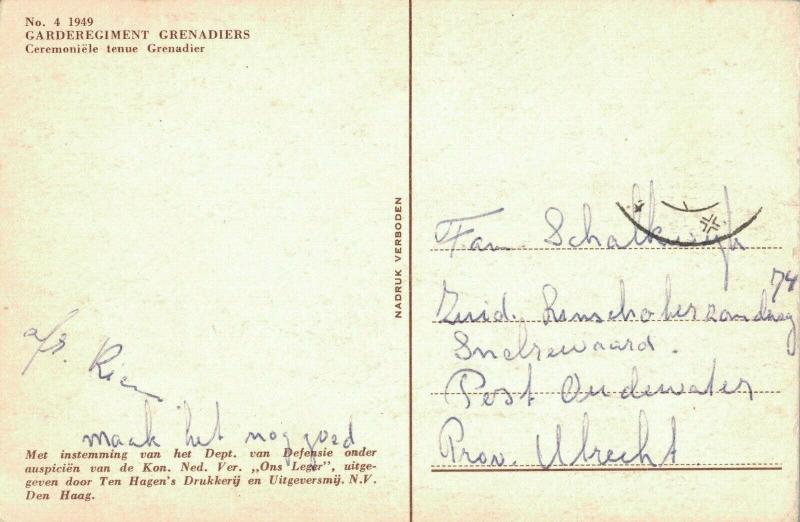 No. 4 1949
GARDEREGIMENT GRENADIERS
Ceremoniële tenue Grenadier
afz. Rien
maak het nog goed
Met instemming van het Dept. van Defensie onder
auspiciën van de Kon. Ned. Ver. „Ons Leger”, uitge-
geven door Ten Hagen's Drukkerij en Uitgeversmij. N.V.
Den Haag.
NADRUK VERBODEN
Fam. Schalkwijk
Zuid. 74
Snelrewaard.
Post Oudewater
Prov. Utrecht.